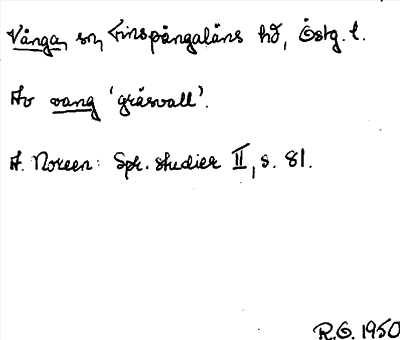 Vånga, sn, Finspångaläns hd, Östg. l.
Av vang 'gräsvall'.
A. Noreen: Spr. studier II, s. 81.
R.G. 1950